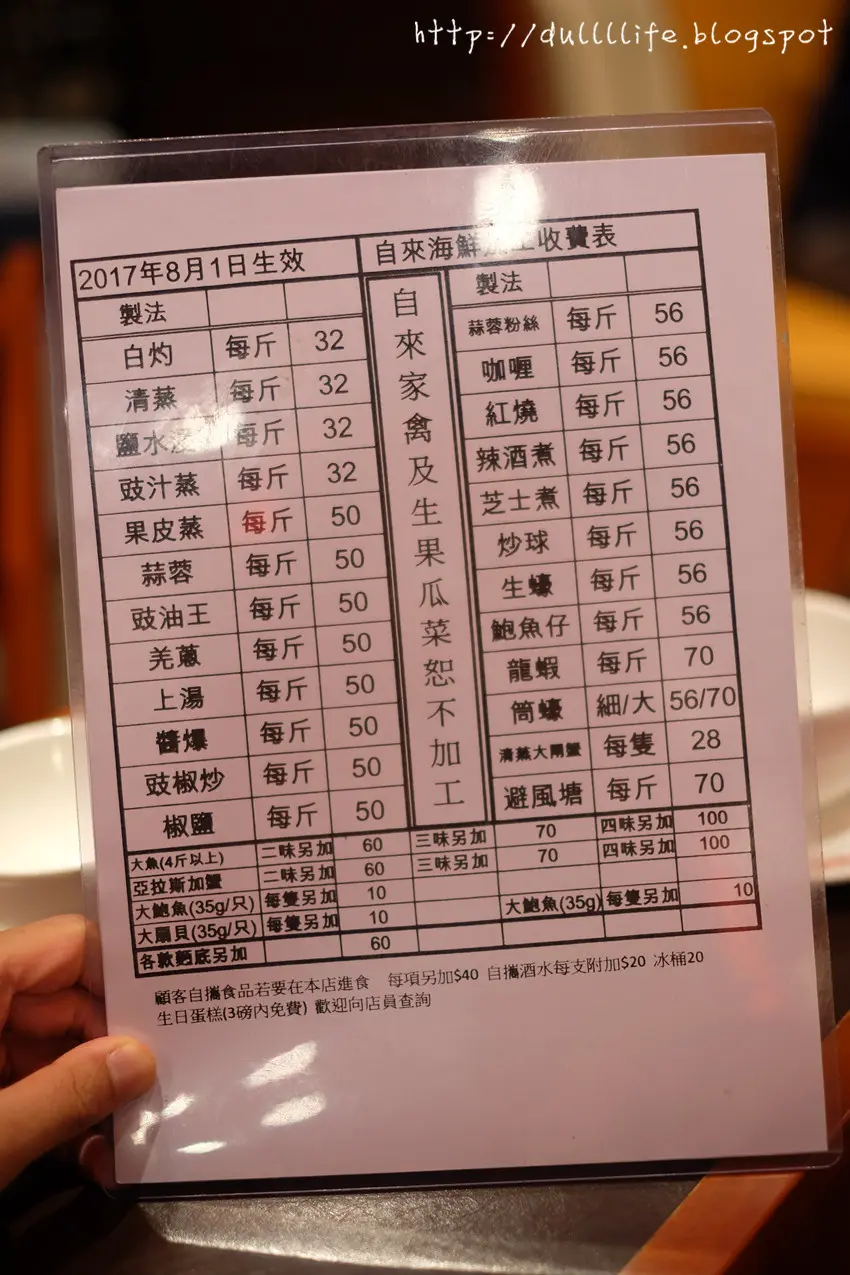 http://dullllife.blogspot
2017年8月1日生效
自來海鮮 收費表
製法
白灼 每斤 32
清蒸 每斤 32
鹽水 每斤 32
豉汁蒸 每斤 32
果皮蒸 每斤 50
蒜蓉 每斤 50
豉油王 每斤 50
羌蔥 每斤 50
上湯 每斤 50
醬爆 每斤 50
豉椒炒 每斤 50
椒鹽 每斤 50
自來家禽及生果瓜菜恕不加工
製法
蒜蓉粉絲 每斤 56
咖喱 每斤 56
紅燒 每斤 56
辣酒煮 每斤 56
芝士煮 每斤 56
炒球 每斤 56
生蠔 每斤 56
鮑魚仔 每斤 56
龍蝦 每斤 70
筒蠔 細/大 56/70
清蒸大閘蟹 每隻 28
避風塘 每斤 70
大魚(4斤以上) 二味另加 60 三味另加 70 四味另加 100
亞拉斯加蟹 二味另加 60 三味另加 70 四味另加 100
大鮑魚(35g/只) 每隻另加 10
大扇貝(35g/只) 每隻另加 10 大鮑魚(35g) 每隻另加 10
各款麵底另加 60
顧客自攜食品若要在本店進食 每項另加$40 自攜酒水每支附加$20 冰桶20
生日蛋糕(3磅內免費) 歡迎向店員查詢